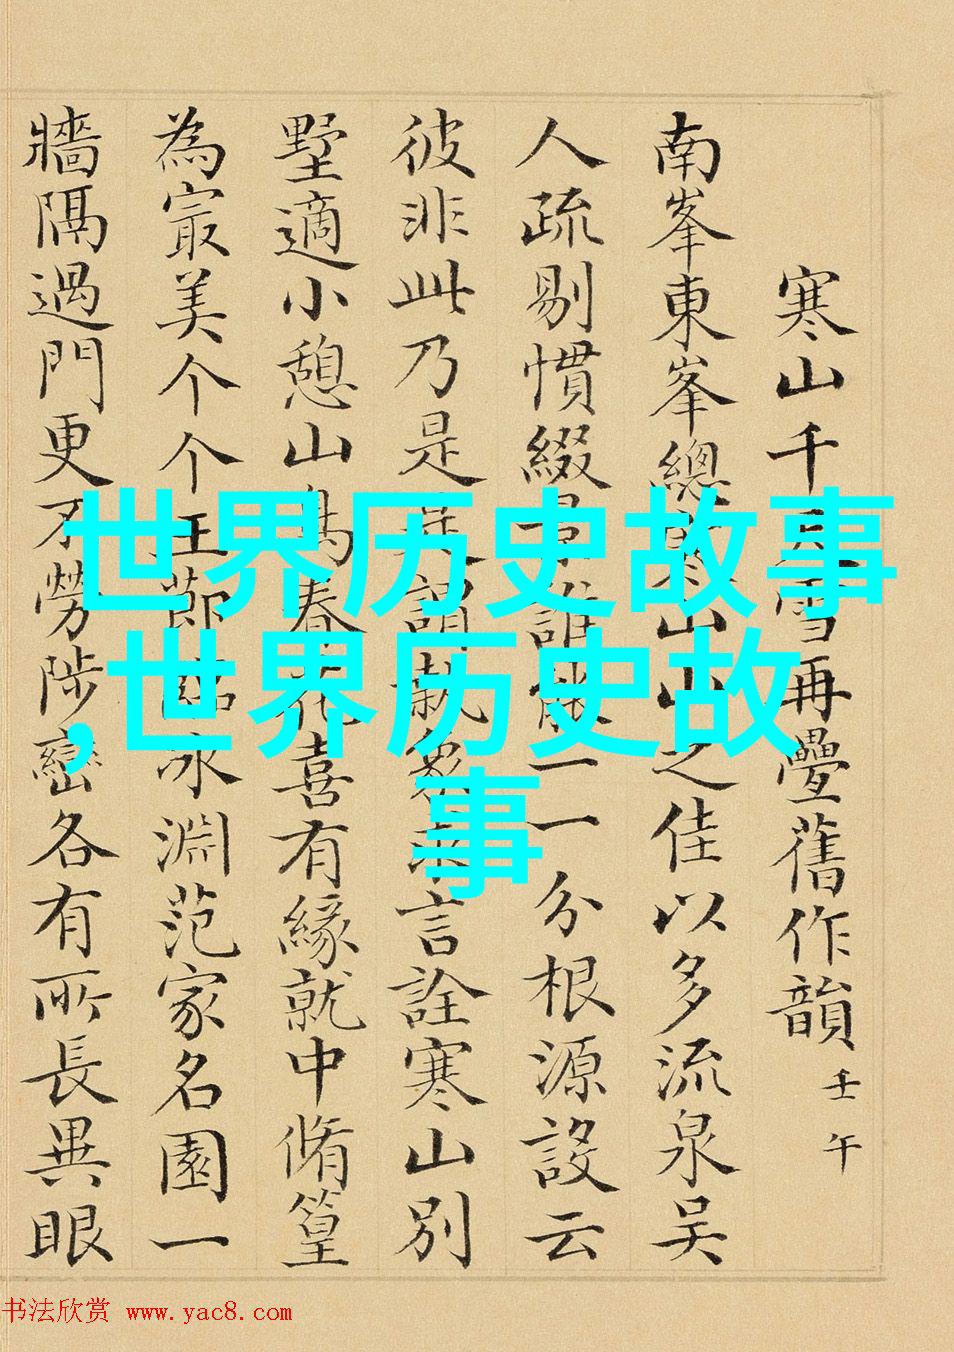 寒山千雪再疊舊作韻 壬午
南峯東峯總山山之佳以多流泉吴
人疏剔慣綴誰一一分根源設云
彼非此乃是謂執象言詮寒山別
墅適小憩山鳥春花喜有緣就中脩篁
為最美个个玉莭臨冰淵范家名園一
牆隔過門更不勞陟巒各有所長異眼
世界历史故事
,世界历史故
事
书法欣赏 www.yac8.com